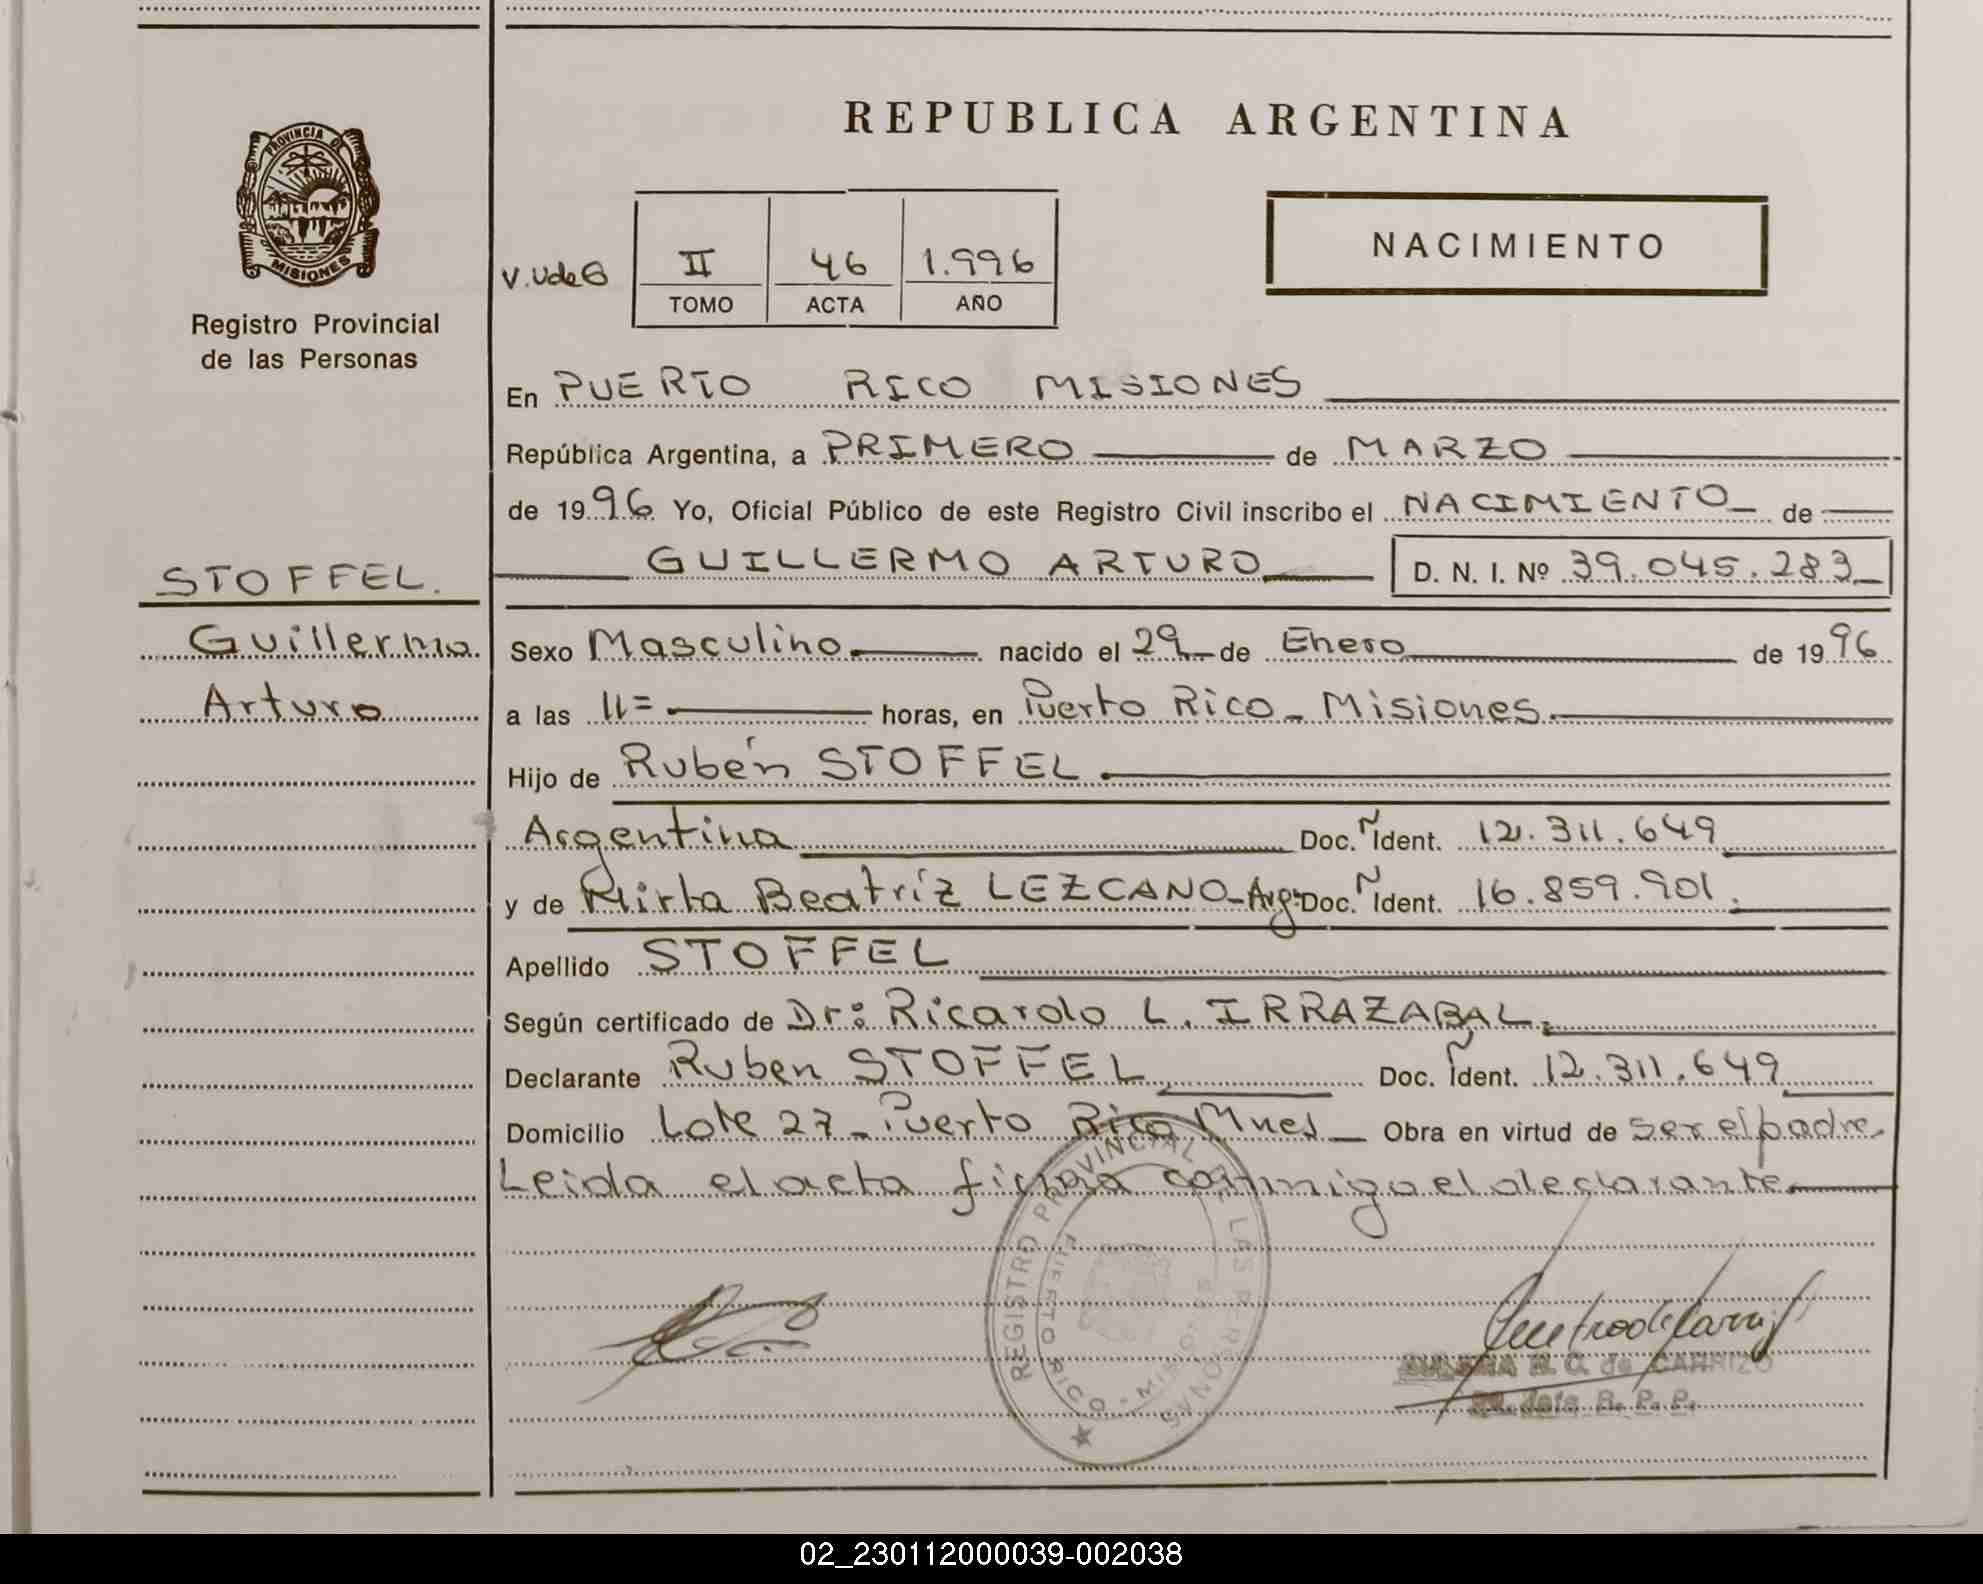 REPUBLICA ARGENTINA
PROVINCIA DE
MISIONES
Registro Provincial
de las Personas
NACIMIENTO
V. Ude G
II 46 1.996
TOMO ACTA AÑO
En PUERTO RICO MISIONES
República Argentina, a PRIMERO de MARZO
de 1996 Yo, Oficial Público de este Registro Civil inscribo el NACIMIENTO de
GUILLERMO ARTURO D. N. I. Nº 39.045.283
STOFFEL.
Guillermo
Arturo
Sexo Masculino nacido el 29 de Enero de 1996
a las 11= horas, en Puerto Rico - Misiones.
Hijo de Rubén STOFFEL
Argentina Doc. Ident. 12.311.649
y de Mirta Beatríz LEZCANO - Arg. Doc. Ident. 16.859.901.
Apellido STOFFEL
Según certificado de Dr: Ricardo L. IRRAZABAL.
Declarante Ruben STOFFEL Doc. Ident. 12.311.649
Domicilio Lote 27 - Puerto Rico Mnes Obra en virtud de ser el padre
Leida el acta firma conmigo el declarante
REGISTRO PROVINCIAL DE LAS PERSONAS
PUERTO RICO - MISIONES
R. C. de CARRIZO
R. P. P.
02_230112000039-002038